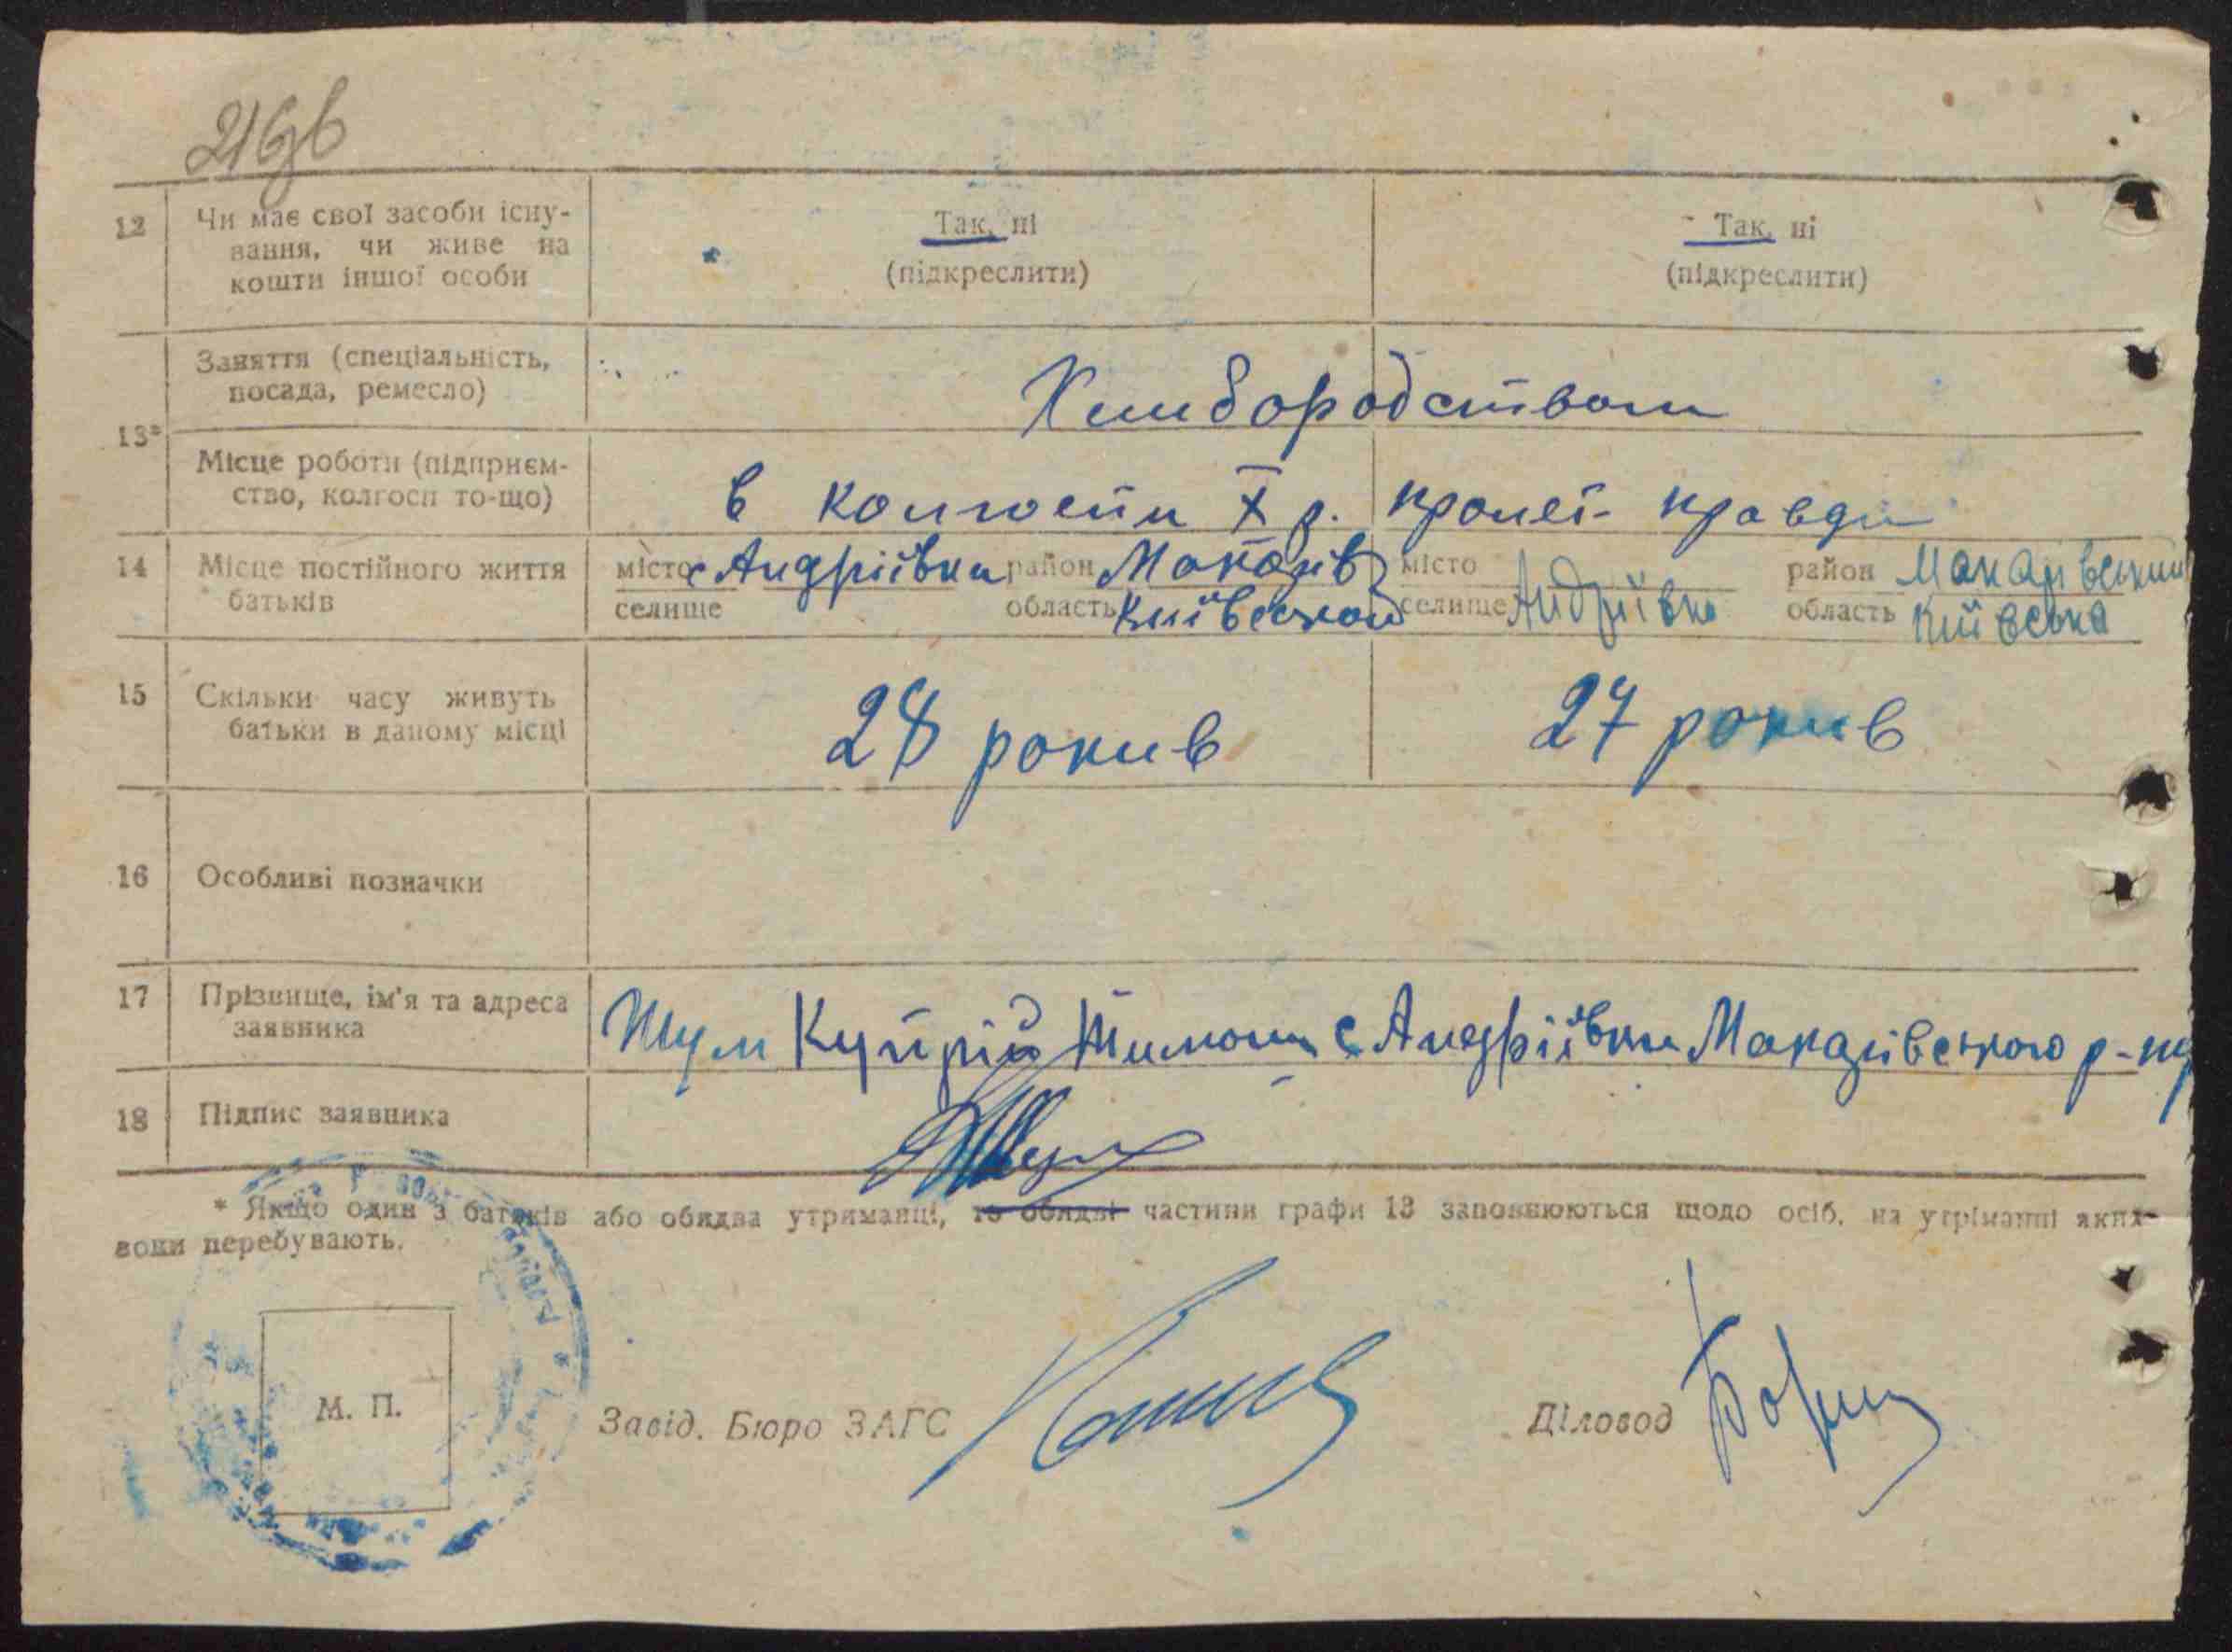 216зв
12 Чи має свої засоби існу- Так, ні Так, ні
вання, чи живе на (підкреслити) (підкреслити)
кошти іншої особи
Заняття (спеціальність,
посада, ремесло) Хлиборобством
13*
Місце роботи (підприєм-
ство, колгосп то-що) в колгоспи X р. пролет правди
14 Місце постійного життя місто с Андріівка район Макарів місто Андріівка район Макарівський
батьків селище область Киівськой селище область Киівська
15 Скільки часу живуть
батьки в даному місці 28 рокив 27 рокив
16 Особливі позначки
17 Прізвище, ім'я та адреса
заявника Шум Купрій с Андріівка Макарівського р-ну
18 Підпис заявника Шум
* Якщо один з батьків або обидва утриманці, то обидві частини графи 13 заповнюються щодо осіб, на утріманні яких
вони перебувають.
М. П.
Завід. Бюро ЗАГС Діловод